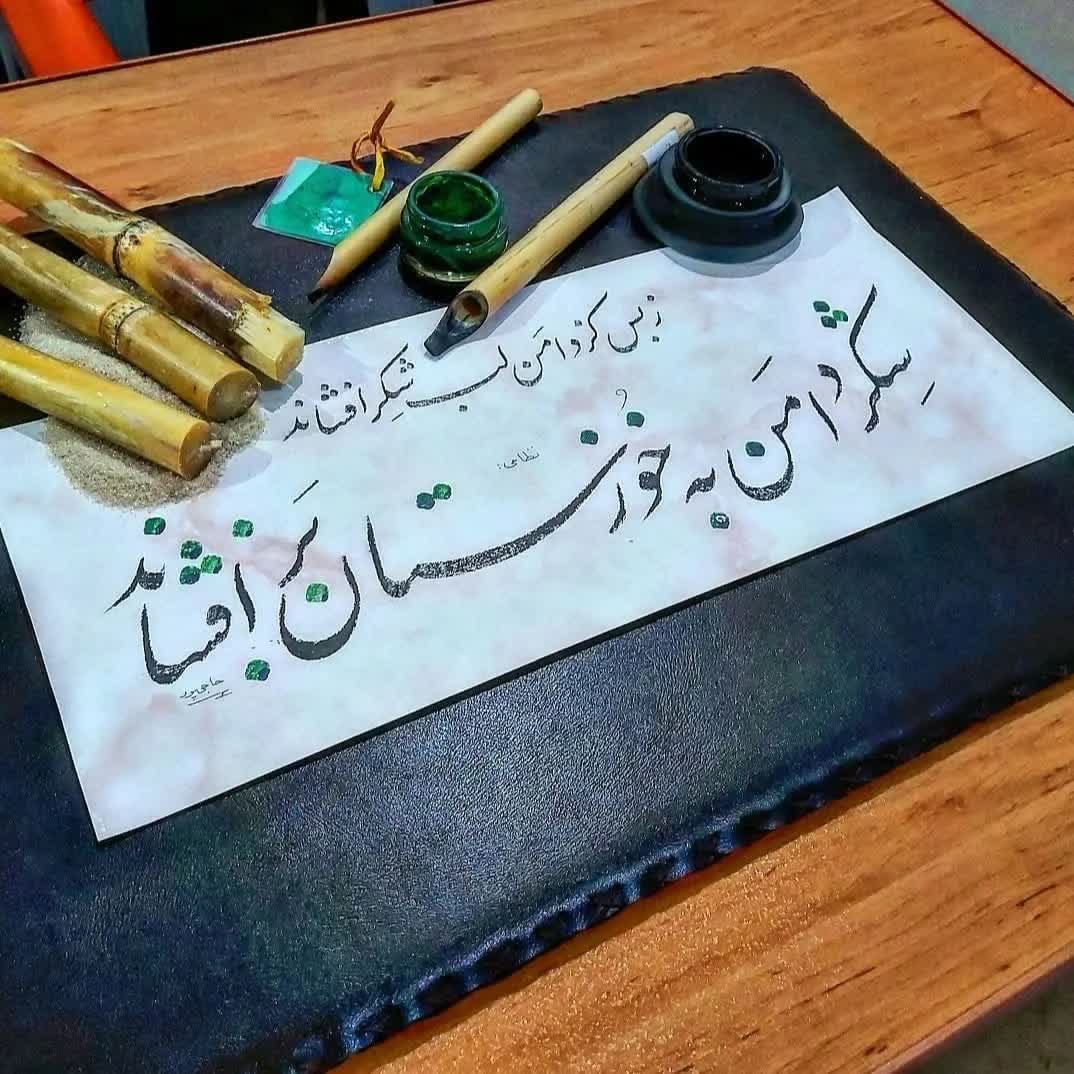 ز بس کز دامن لب شکر افشاند
شکر دامن به خوزستان بر افشاند
نظامی:
حاجی‌پور